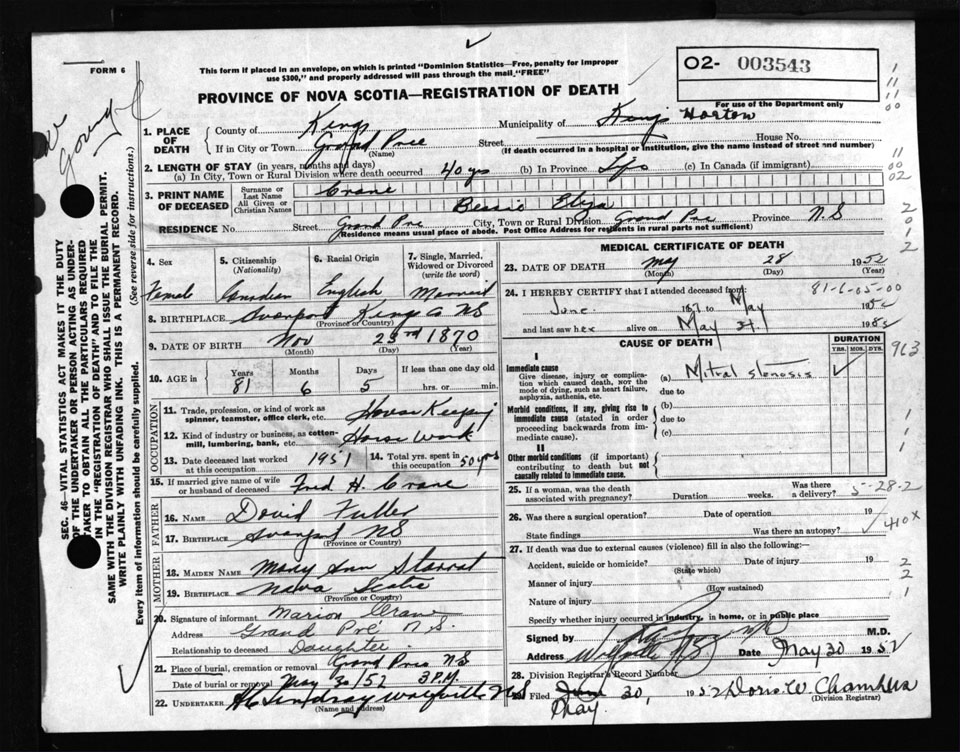 FORM 6
This form if placed in an envelope, on which is printed "Dominion Statistics—Free, penalty for improper
use $300," and properly addressed will pass through the mail, "FREE"
O2- 003543
For use of the Department only
PROVINCE OF NOVA SCOTIA—REGISTRATION OF DEATH
1. PLACE OF DEATH County of Kings Municipality of Kings Horton
If in City or Town Grand Pre (Name) Street House No.
(If death occurred in a hospital or institution, give the name instead of street and number)
2. LENGTH OF STAY (in years, months and days)
(a) In City, Town or Rural Division where death occurred 40 yrs (b) In Province Life (c) In Canada (if immigrant)
3. PRINT NAME OF DECEASED Surname or Last Name Crane
All Given or Christian Names Bessie Eliza
RESIDENCE No. Street Grand Pre City, Town or Rural Division Grand Pre Province N.S
(Residence means usual place of abode. Post Office Address for residents in rural parts not sufficient)
4. Sex 5. Citizenship (Nationality) 6. Racial Origin 7. Single, Married, Widowed or Divorced (write the word)
Female Canadian English Married
8. BIRTHPLACE Avonport Kings Co NS
(Province or Country)
9. DATE OF BIRTH Nov 23rd 1870
(Month) (Day) (Year)
10. AGE in Years Months Days If less than one day old
81 6 5 hrs. or min.
OCCUPATION
11. Trade, profession, or kind of work as spinner, teamster, office clerk, etc. House Keeping
12. Kind of industry or business, as cotten-mill, lumbering, bank, etc. House Work
13. Date deceased last worked at this occupation 1951 14. Total yrs. spent in this occupation 50 yrs
15. If married give name of wife or husband of deceased Fred H. Crane
FATHER
16. NAME David Fuller
17. BIRTHPLACE Avonport NS
(Province or Country)
MOTHER
18. MAIDEN NAME Mary Ann Starrat
19. BIRTHPLACE Nova Scotia
(Province or Country)
20. Signature of informant Marion Crane
Address Grand Pré N.S.
Relationship to deceased Daughter
21. Place of burial, cremation or removal Grand Pre NS
Date of burial or removal May 30/52 3 P.M.
22. UNDERTAKER Lindsay Wolfville NS
(Name and address)
MEDICAL CERTIFICATE OF DEATH
23. DATE OF DEATH May 28 1952
(Month) (Day) (Year)
81-6-05-00
24. I HEREBY CERTIFY that I attended deceased from:
June to May 1952
and last saw her alive on May 1952
CAUSE OF DEATH DURATION
YRS. MOS. DYS.
963
I
Immediate cause
Give disease, injury or complication which caused death, not the mode of dying, such as heart failure, asphyxia, asthenia, etc.
(a) Mitral stenosis
due to
Morbid conditions, if any, giving rise to immediate cause (stated in order proceeding backwards from immediate cause).
(b)
due to
(c)
II
Other morbid conditions (if important) contributing to death but not causally related to immediate cause.
25. If a woman, was the death associated with pregnancy? Duration weeks. Was there a delivery?
5-28-2
26. Was there a surgical operation? Date of operation 19
State findings Was there an autopsy?
410X
27. If death was due to external causes (violence) fill in also the following:—
Accident, suicide or homicide? Date of injury 19
(State which)
Manner of injury
(How sustained)
Nature of injury
Specify whether injury occurred in industry, in home, or in public place
Signed by M.D.
Address Wolfville NS Date May 30 1952
28. Division Registrar's Record Number
29. Filed June 30, 1952 Doris W. Chambers
May (Division Registrar)
SEC. 46—VITAL STATISTICS ACT MAKES IT THE DUTY
OF THE UNDERTAKER OR PERSON ACTING AS UNDER-
TAKER TO OBTAIN ALL THE PARTICULARS REQUIRED
IN THE "REGISTRATION OF DEATH" AND TO FILE THE
SAME WITH THE DIVISION REGISTRAR WHO SHALL ISSUE THE BURIAL PERMIT.
WRITE PLAINLY WITH UNFADING INK. THIS IS A PERMANENT RECORD.
Every item of information should be carefully supplied. (See reverse side for instructions.)